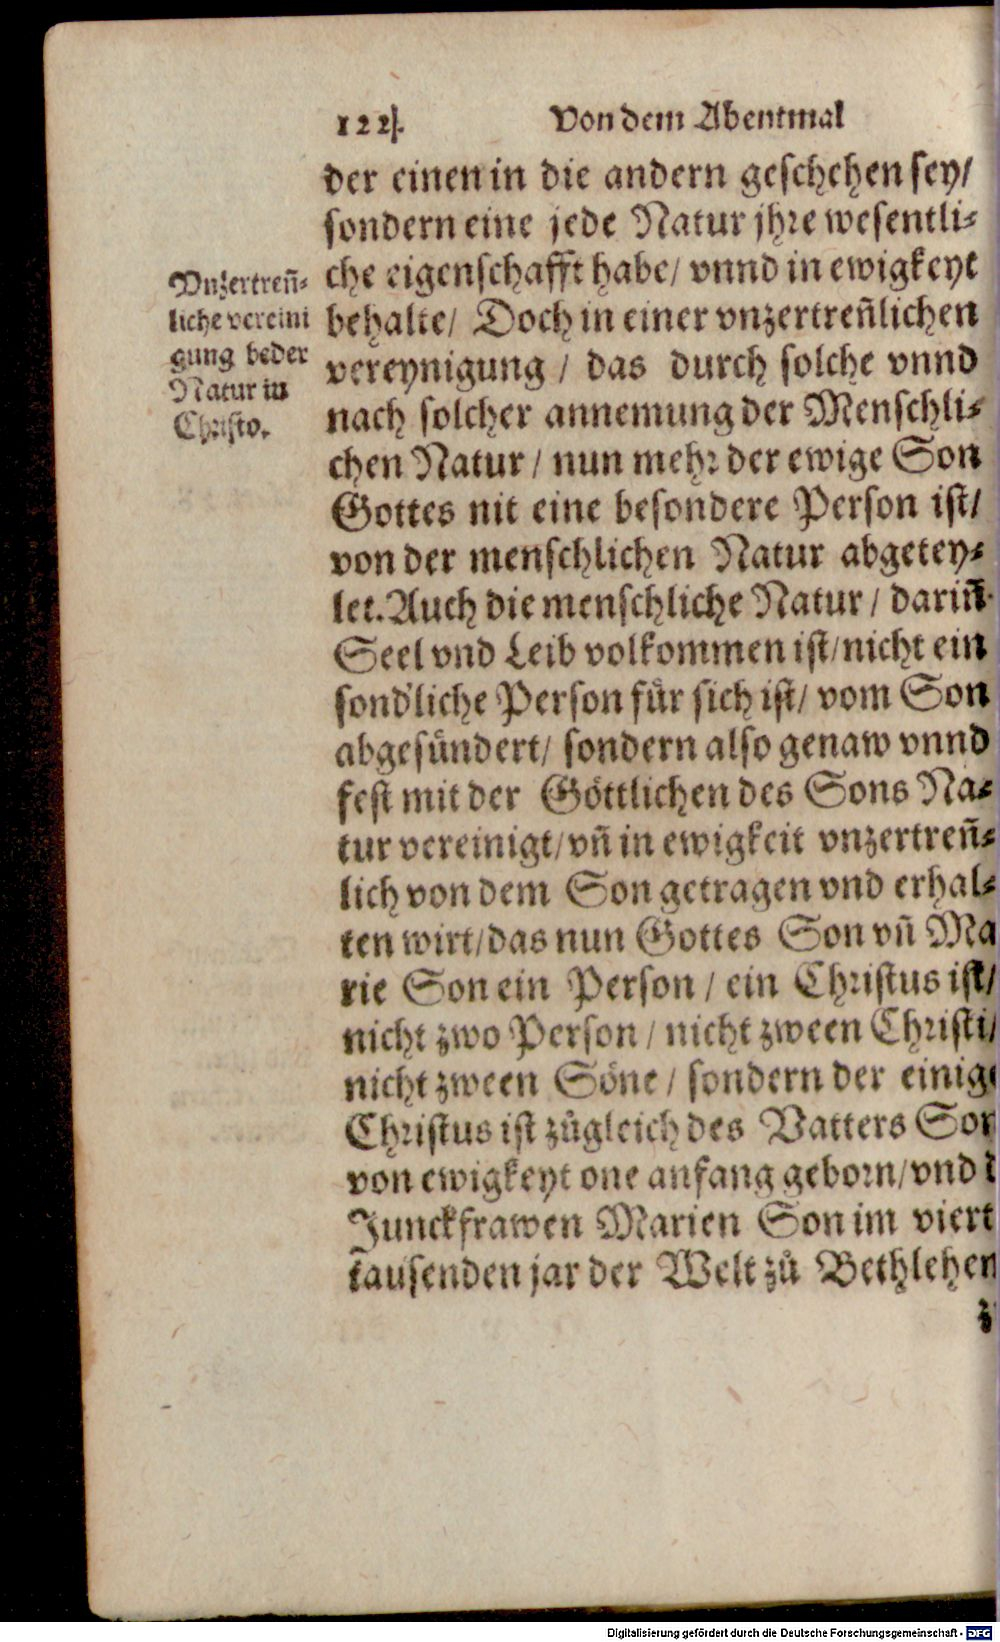 122. Von dem Abentmal
der einen in die andern geschehen sey/
sondern eine jede Natur jhre wesentli⸗
che eigenschafft habe/ vnnd in ewigkeyt
behalte/ Doch in einer vnzertren̄lichen
vereynigung / das durch solche vnnd
nach solcher annemung der Menschli⸗
chen Natur / nun mehr der ewige Son
Gottes nit eine besondere Person ist/
von der menschlichen Natur abgetey⸗
let. Auch die menschliche Natur / darin̄
Seel vnd Leib volkommen ist/ nicht ein
sond'liche Person für sich ist/ vom Son
abgesündert/ sondern also genaw vnnd
fest mit der Göttlichen des Sons Na⸗
tur vereinigt/ vn̄ in ewigkeit vnzertren̄⸗
lich von dem Son getragen vnd erhal⸗
ten wirt/ das nun Gottes Son vn̄ Ma
rie Son ein Person / ein Christus ist/
nicht zwo Person / nicht zween Christi/
nicht zween Söne / sondern der einig
Christus ist zůgleich des Vatters Son
von ewigkeyt one anfang geborn/ vnd
Junckfrawen Marien Son im viert
tausenden jar der Welt zů Bethlehem
Vnzertren̄⸗
liche vereini
gung beder
Natur in
Christo.
Digitalisierung gefördert durch die Deutsche Forschungsgemeinschaft - DFG